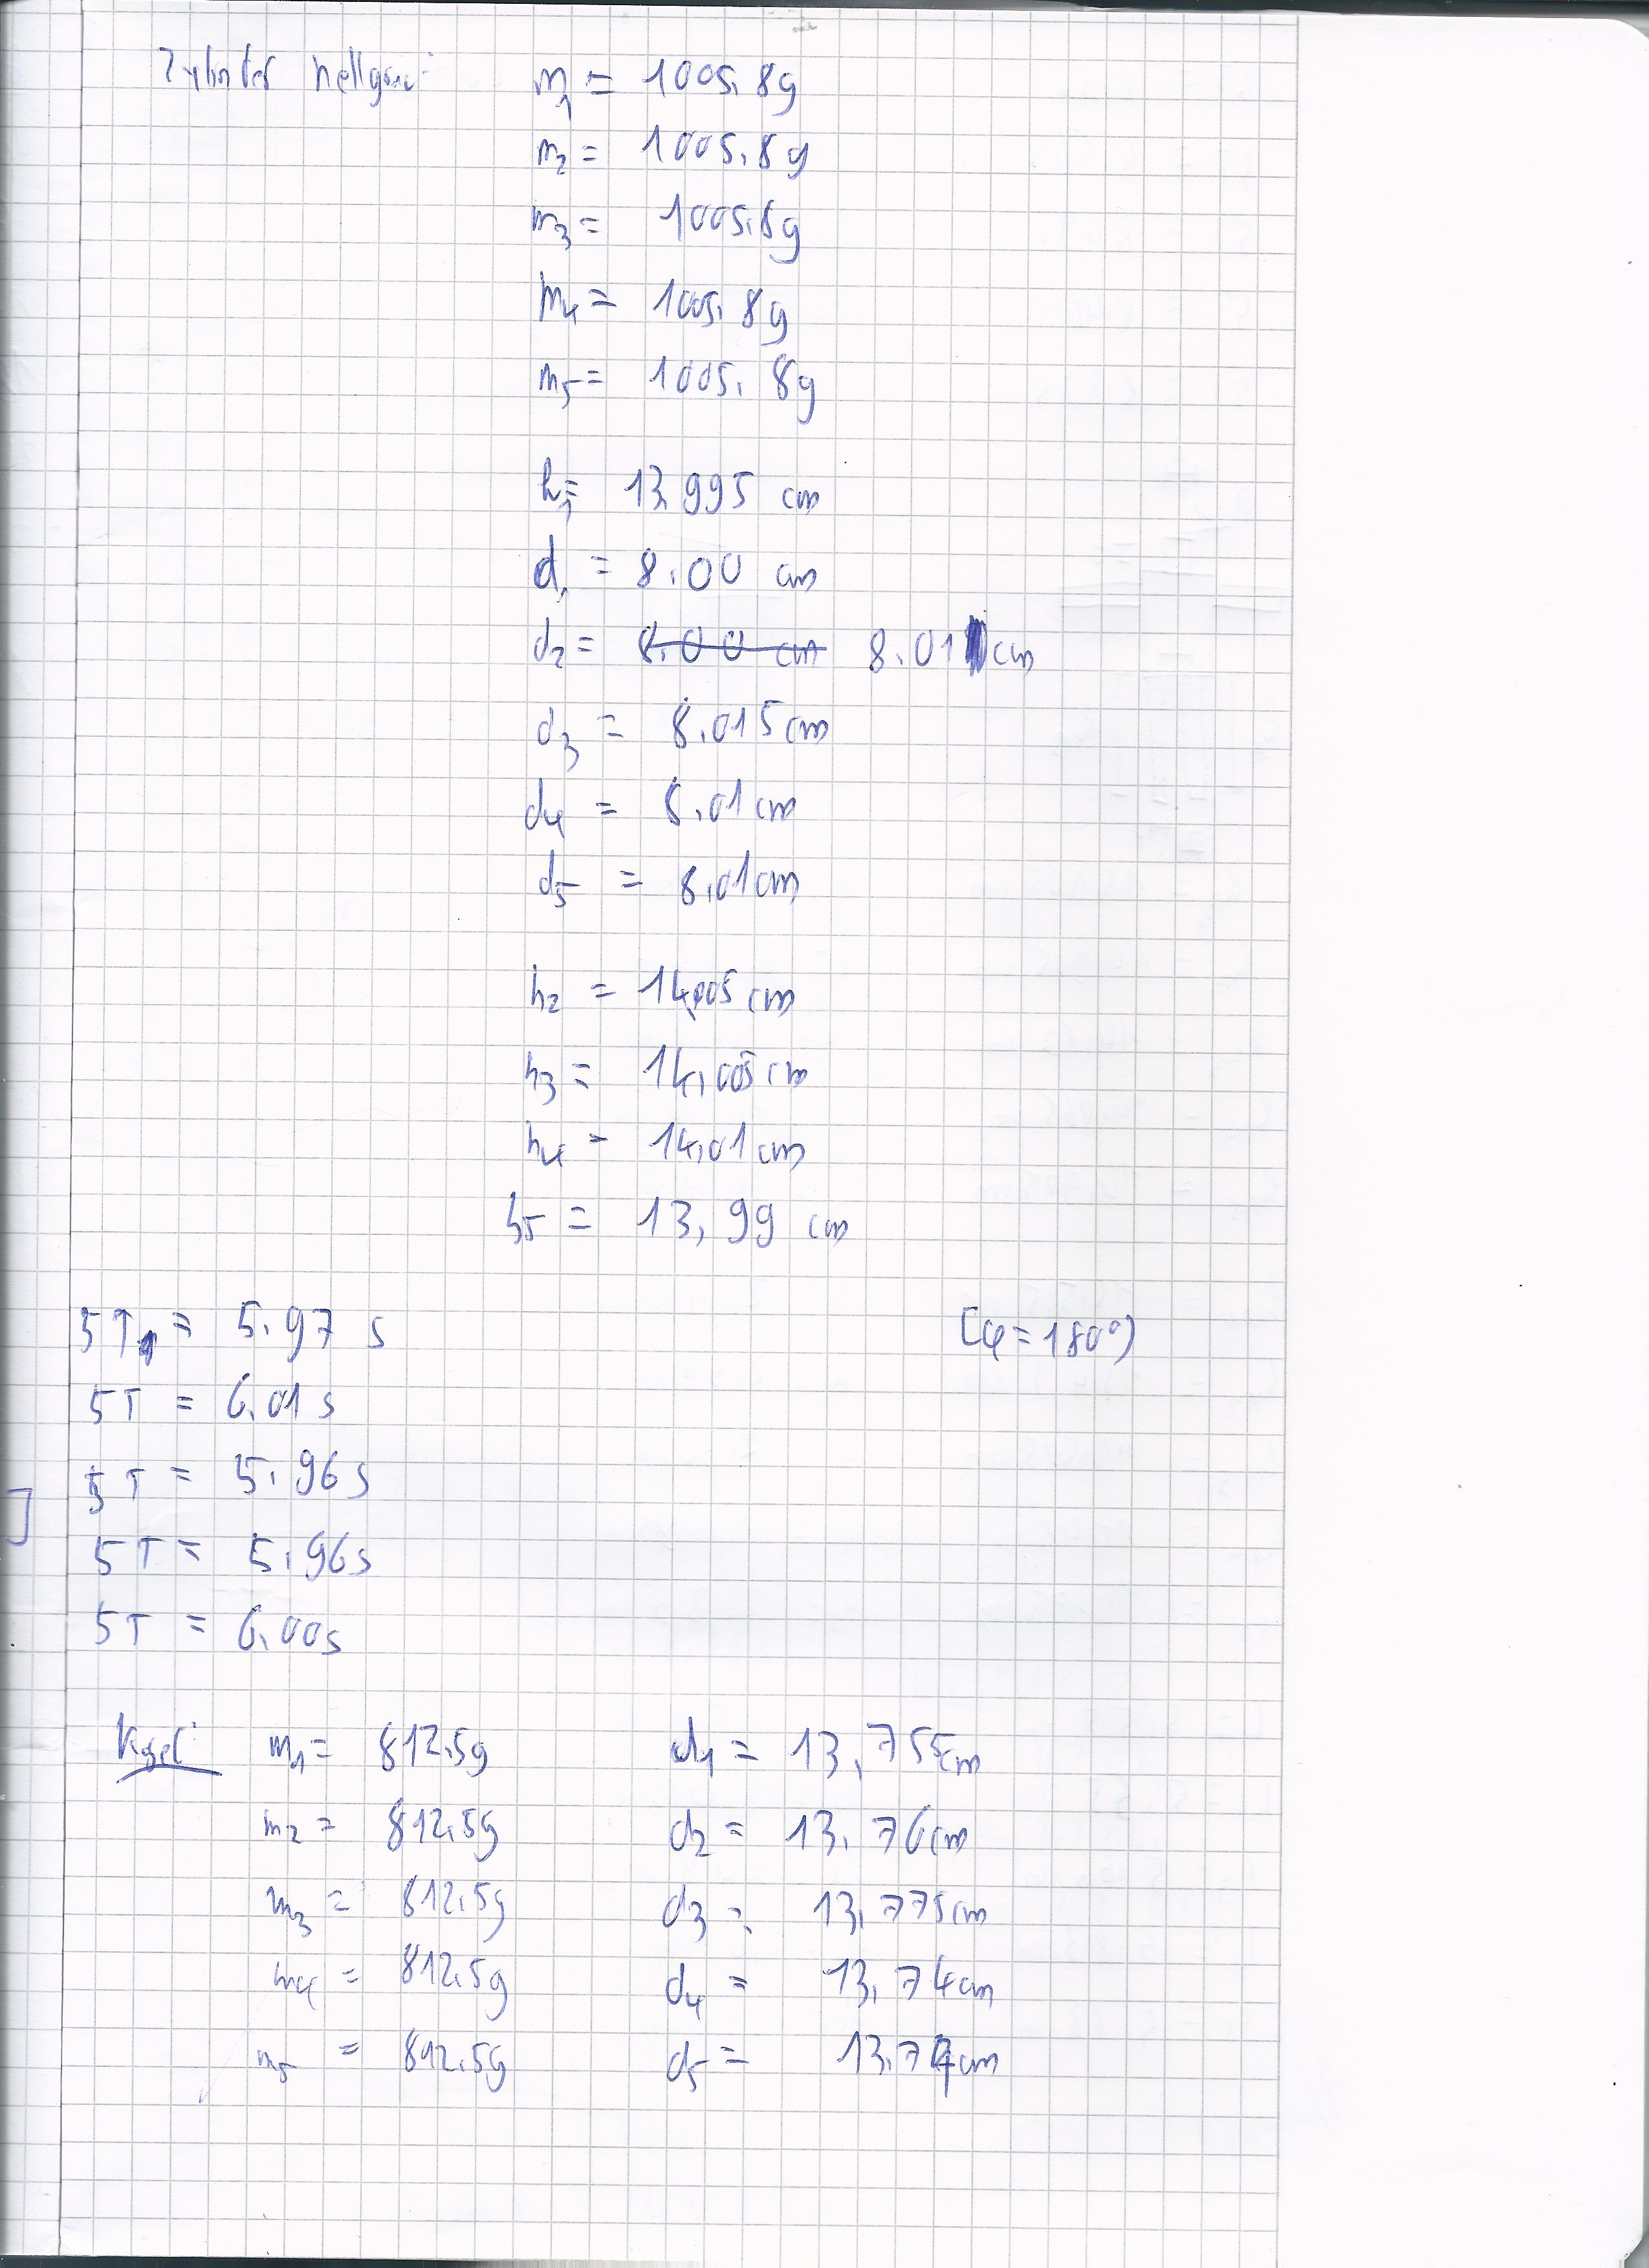 Zylinder hellgrau: m1 = 1005.8g
m2 = 1005.8g
m3 = 1005.8g
m4 = 1005.8g
m5 = 1005.8g
h1 = 13.995 cm
d1 = 8.00 cm
d2 = 8.00 cm 8.01 cm
d3 = 8.015cm
d4 = 8.01cm
d5 = 8.01cm
h2 = 14,005 cm
h3 = 14,005 cm
h4 = 14,01 cm
h5 = 13,99 cm
5T = 5.97 s (φ=180°)
5T = 6.01 s
5T = 5.96s
5T = 5.96s
5T = 6.00s
Kugel: m1 = 812.5g d1 = 13,755cm
m2 = 812.5g d2 = 13.76cm
m3 = 812.5g d3 = 13,775cm
m4 = 812.5g d4 = 13,74cm
m5 = 812.5g d5 =